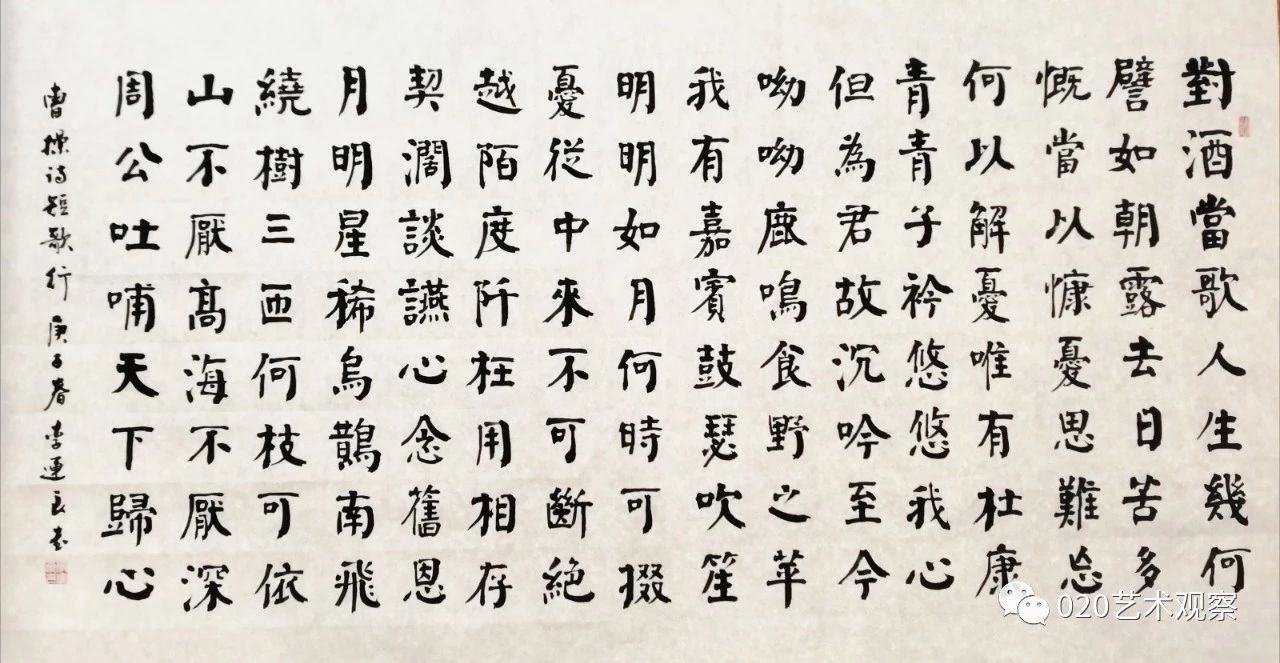 對酒當歌人生幾何
譬如朝露去日苦多
慨當以慷憂思難忘
何以解憂唯有杜康
青青子衿悠悠我心
但為君故沉吟至今
呦呦鹿鳴食野之苹
我有嘉賓鼓瑟吹笙
明明如月何時可掇
憂從中來不可斷絕
越陌度阡枉用相存
契濶談讌心念舊恩
月明星稀烏鵲南飛
繞樹三匝何枝可依
山不厭高海不厭深
周公吐哺天下歸心
曹操詩短歌行 庚子春 李運良書
020艺术观察